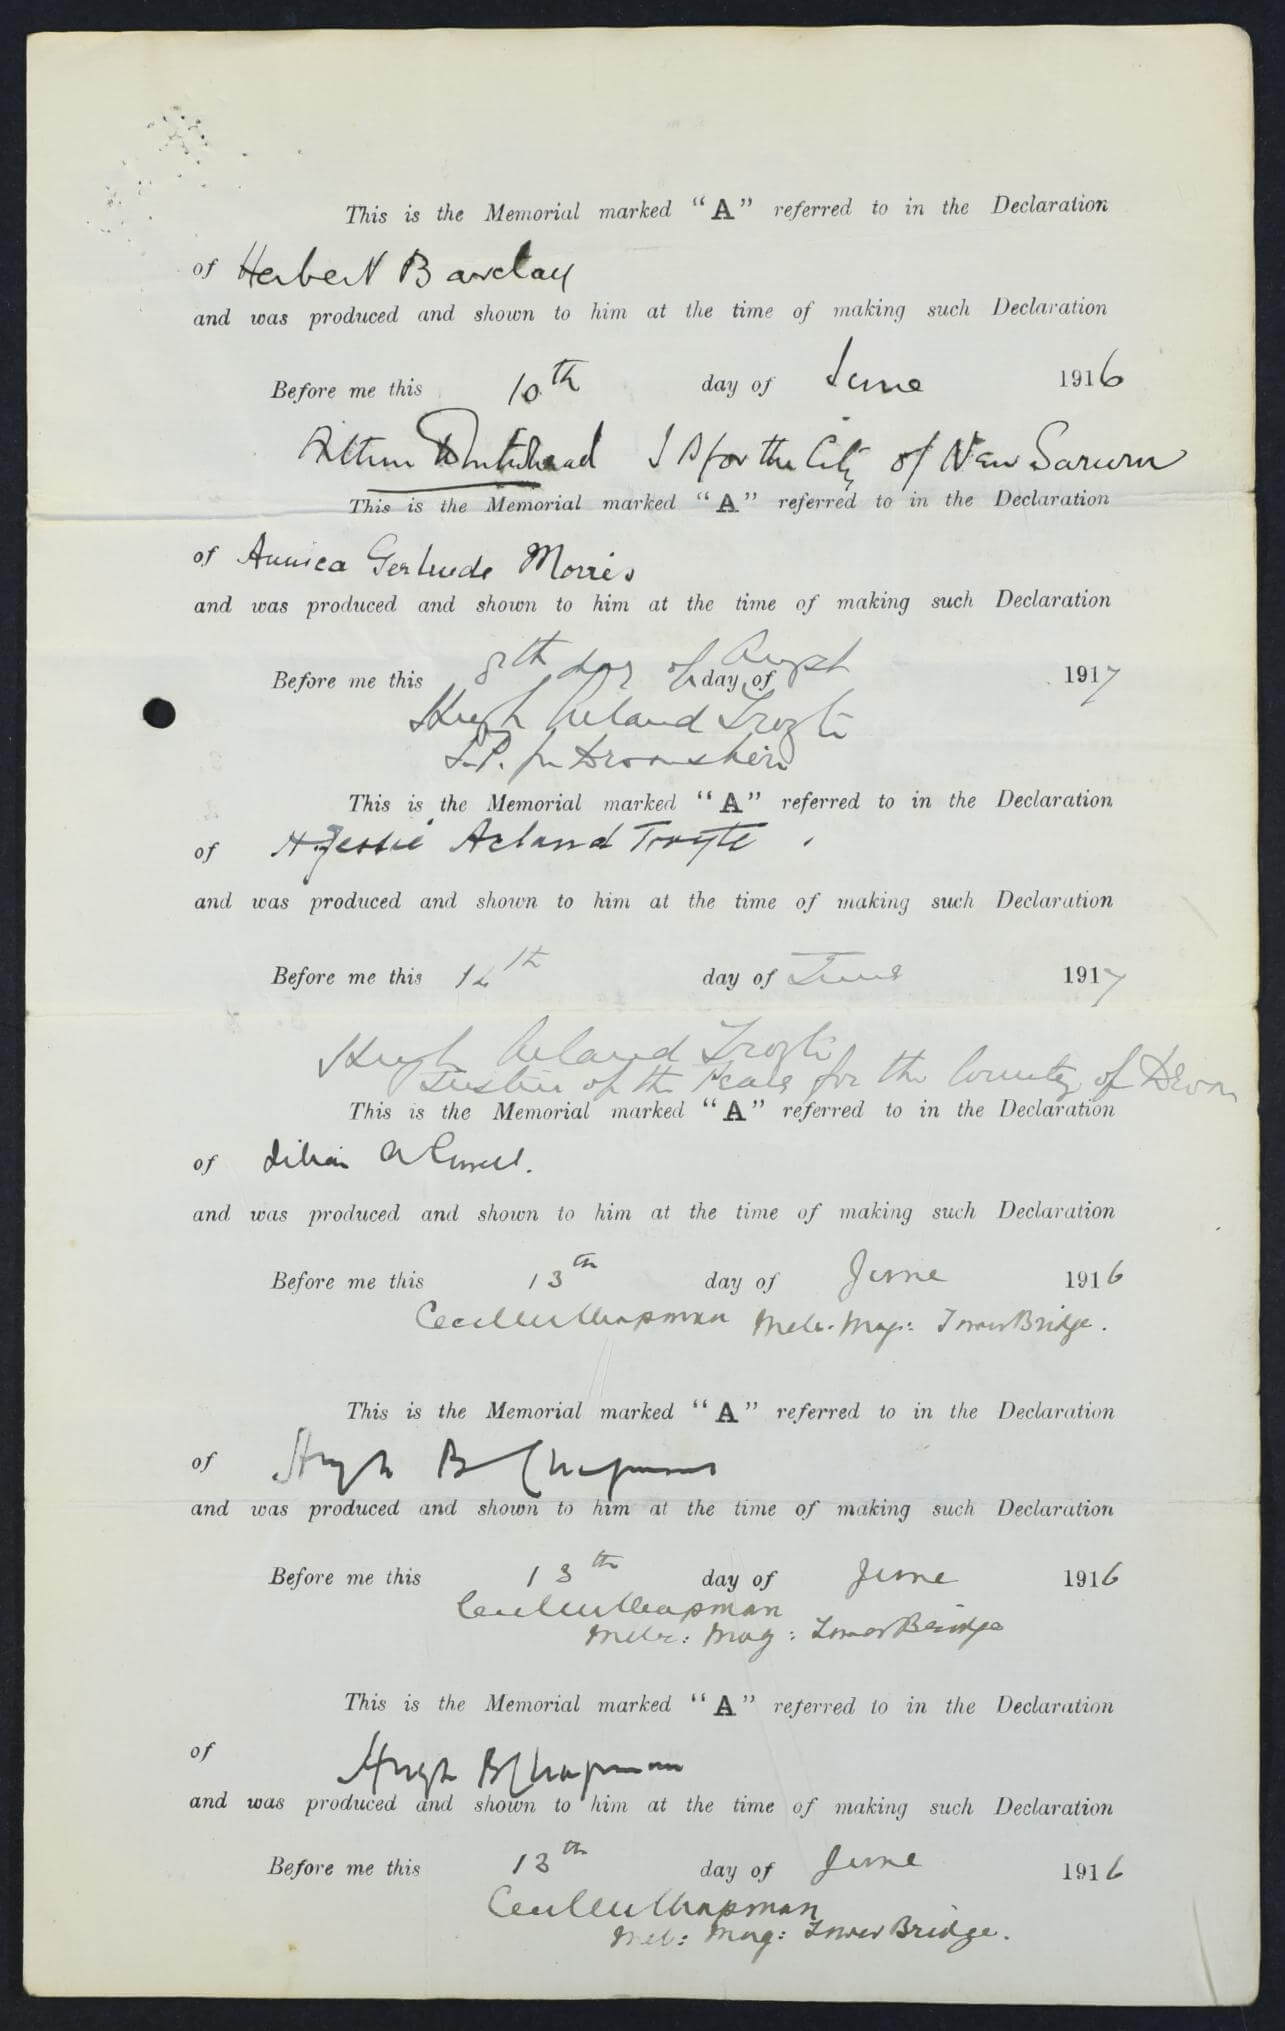 This is the Memorial marked "A" referred to in the Declaration
of Herbert Barclay
and was produced and shown to him at the time of making such Declaration
Before me this 10th day of June 1916
Arthur Whitehead J P for the City of New Sarum
This is the Memorial marked "A" referred to in the Declaration
of Gertrude Morris
and was produced and shown to him at the time of making such Declaration
Before me this 8th day of August day of 1917
Hugh Acland Troyte
J.P. for Devonshire
This is the Memorial marked "A" referred to in the Declaration
of H. Jessie Acland Troyte
and was produced and shown to him at the time of making such Declaration
Before me this day of June 1917
Hugh Acland Troyte
Justice of the Peace for the County of Devon
This is the Memorial marked "A" referred to in the Declaration
of Lilian
and was produced and shown to him at the time of making such Declaration
Before me this 13th day of June 1916
Cecil M Chapman Metr. Mag: Tower Bridge.
This is the Memorial marked "A" referred to in the Declaration
of Hugh B Chapman
and was produced and shown to him at the time of making such Declaration
Before me this 13th day of June 1916
Cecil M Chapman
Metr: Mag: Tower Bridge
This is the Memorial marked "A" referred to in the Declaration
of Hugh B Chapman
and was produced and shown to him at the time of making such Declaration
Before me this 13th day of June 1916
Cecil M Chapman
Met: Mag: Tower Bridge.